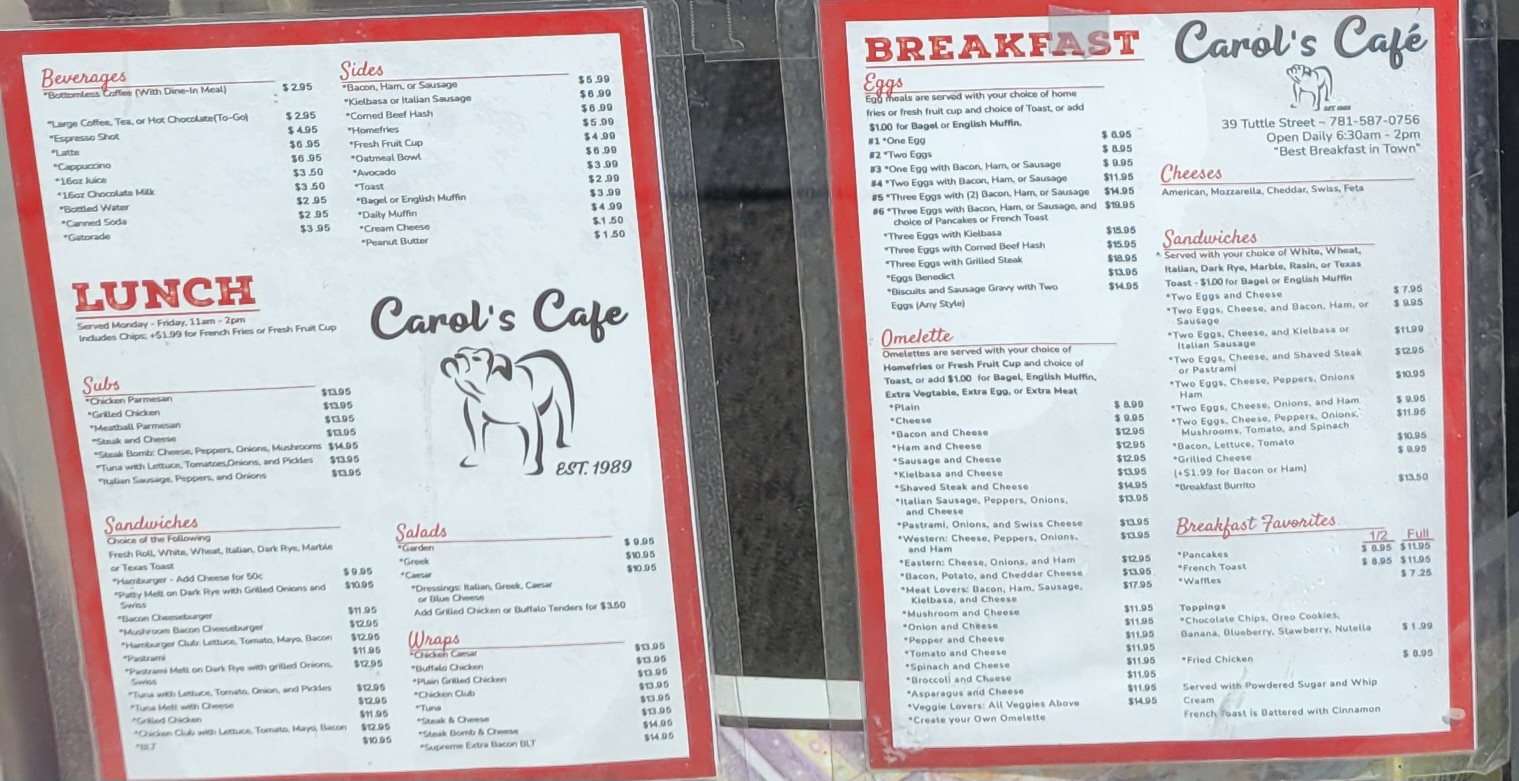 Beverages
*Bottomless Coffee (With Dine-In Meal) $ 2.95
*Large Coffee, Tea, or Hot Chocolate(To-Go) $ 2.95
*Espresso Shot $ 4.95
*Latte $6.95
*Cappuccino $6.95
*16oz Juice $3.50
*16oz Chocolate Milk $3.50
*Bottled Water $2.95
*Canned Soda $2.95
*Gatorade $3.95
Sides
*Bacon, Ham, or Sausage $5.99
*Kielbasa or Italian Sausage $6.99
*Corned Beef Hash $6.99
*Homefries $5.99
*Fresh Fruit Cup $4.99
*Oatmeal Bowl $6.99
*Avocado $3.99
*Toast $2.99
*Bagel or English Muffin $3.99
*Daily Muffin $4.99
*Cream Cheese $1.50
*Peanut Butter $1.50
LUNCH
Served Monday - Friday, 11am - 2pm
Includes Chips; +$1.99 for French Fries or Fresh Fruit Cup
Carol's Cafe
EST. 1989
Subs
*Chicken Parmesan $13.95
*Grilled Chicken $13.95
*Meatball Parmesan $13.95
*Steak and Cheese $13.95
*Steak Bomb: Cheese, Peppers, Onions, Mushrooms $14.95
*Tuna with Lettuce, Tomatoes,Onions, and Pickles $13.95
*Italian Sausage, Peppers, and Onions $13.95
Sandwiches
Choice of the Following
Fresh Roll, White, Wheat, Italian, Dark Rye, Marble
or Texas Toast
*Hamburger - Add Cheese for 50c $ 9.95
*Patty Melt on Dark Rye with Grilled Onions and $10.95
Swiss
*Bacon Cheeseburger $11.95
*Mushroom Bacon Cheeseburger $12.95
*Hamburger Club: Lettuce, Tomato, Mayo, Bacon $12.95
*Pastrami $11.95
*Pastrami Melt on Dark Rye with grilled Onions, $12.95
Swiss
*Tuna with Lettuce, Tomato, Onion, and Pickles $12.95
*Tuna Melt with Cheese $12.95
*Grilled Chicken $11.95
*Chicken Club with Lettuce, Tomato, Mayo, Bacon $12.95
*BLT $10.95
Salads
*Garden $ 9.95
*Greek $10.95
*Caesar $10.95
*Dressings: Italian, Greek, Caesar
or Blue Cheese
Add Grilled Chicken or Buffalo Tenders for $3.50
Wraps
*Chicken Caesar $13.95
*Buffalo Chicken $13.95
*Plain Grilled Chicken $13.95
*Chicken Club $13.95
*Tuna $13.95
*Steak & Cheese $13.95
*Steak Bomb & Cheese $14.95
*Supreme Extra Bacon BLT $14.95
BREAKFAST
Carol's Café
EST. 1989
39 Tuttle Street ~ 781-587-0756
Open Daily 6:30am - 2pm
"Best Breakfast in Town"
Eggs
Egg meals are served with your choice of home
fries or fresh fruit cup and choice of Toast, or add
$1.00 for Bagel or English Muffin.
#1 *One Egg $ 6.95
#2 *Two Eggs $ 8.95
#3 *One Egg with Bacon, Ham, or Sausage $ 9.95
#4 *Two Eggs with Bacon, Ham, or Sausage $11.95
#5 *Three Eggs with (2) Bacon, Ham, or Sausage $14.95
#6 *Three Eggs with Bacon, Ham, or Sausage, and $19.95
choice of Pancakes or French Toast
*Three Eggs with Kielbasa $15.95
*Three Eggs with Corned Beef Hash $15.95
*Three Eggs with Grilled Steak $18.95
*Eggs Benedict $13.95
*Biscuits and Sausage Gravy with Two $14.95
Eggs (Any Style)
Omelette
Omelettes are served with your choice of
Homefries or Fresh Fruit Cup and choice of
Toast, or add $1.00 for Bagel, English Muffin,
Extra Vegtable, Extra Egg, or Extra Meat
*Plain $ 8.99
*Cheese $ 9.95
*Bacon and Cheese $12.95
*Ham and Cheese $12.95
*Sausage and Cheese $12.95
*Kielbasa and Cheese $13.95
*Shaved Steak and Cheese $14.95
*Italian Sausage, Peppers, Onions, $13.95
and Cheese
*Pastrami, Onions, and Swiss Cheese $13.95
*Western: Cheese, Peppers, Onions, $13.95
and Ham
*Eastern: Cheese, Onions, and Ham $12.95
*Bacon, Potato, and Cheddar Cheese $13.95
*Meat Lovers: Bacon, Ham, Sausage, $17.95
Kielbasa, and Cheese
*Mushroom and Cheese $11.95
*Onion and Cheese $11.95
*Pepper and Cheese $11.95
*Tomato and Cheese $11.95
*Spinach and Cheese $11.95
*Broccoli and Cheese $11.95
*Asparagus and Cheese $11.95
*Veggie Lovers: All Veggies Above $14.95
*Create your Own Omelette
Cheeses
American, Mozzarella, Cheddar, Swiss, Feta
Sandwiches
* Served with your choice of White, Wheat,
Italian, Dark Rye, Marble, Rasin, or Texas
Toast - $1.00 for Bagel or English Muffin
*Two Eggs and Cheese $ 7.95
*Two Eggs, Cheese, and Bacon, Ham, or $ 9.95
Sausage
*Two Eggs, Cheese, and Kielbasa or $11.99
Italian Sausage
*Two Eggs, Cheese, and Shaved Steak $12.95
or Pastrami
*Two Eggs, Cheese, Peppers, Onions $10.95
Ham
*Two Eggs, Cheese, Onions, and Ham $ 9.95
*Two Eggs, Cheese, Peppers, Onions, $11.95
Mushrooms, Tomato, and Spinach
*Bacon, Lettuce, Tomato $10.95
*Grilled Cheese $ 9.95
(+$1.99 for Bacon or Ham)
*Breakfast Burrito $13.50
Breakfast Favorites
1/2 Full
*Pancakes $ 8.95 $11.95
*French Toast $ 8.95 $11.95
*Waffles $ 7.25
Toppings
*Chocolate Chips, Oreo Cookies,
Banana, Blueberry, Stawberry, Nutella $ 1.99
*Fried Chicken $ 8.95
Served with Powdered Sugar and Whip
Cream
French Toast is Battered with Cinnamon